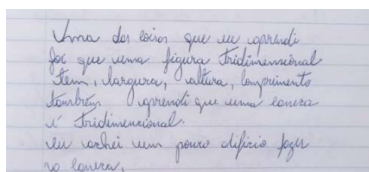 Uma das coias que eu aprendi
foi que uma figura tridimensional
tem, largura, altura, comprimento
também aprendi que uma caneca
é tridimencional.
eu achei um pouco difício fazer
na caneca,